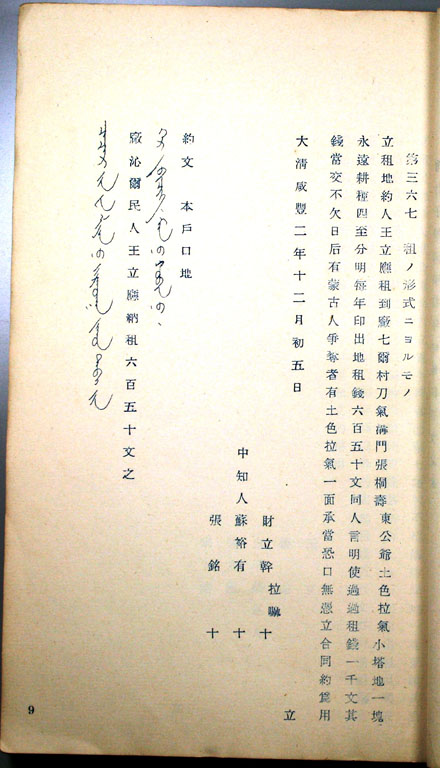 第三六七 租ノ形式ニヨルモノ
立租地約人王立廰租到廠七爾村刀氣溝門張櫚壽東公爺土色拉氣小塔地一塊
永遠耕種四至分明每年印出地租錢六百五十文同人言明使過過租錢一千文其
錢當交不欠日后有蒙古人爭奪者有土色拉氣一面承當恐口無憑立合同約爲用
立
大清咸豐二年十二月初五日
財立幹 拉嘛 十
中知人 蘇裕有 十
張銘 十
約文 本戶口地
廠沁爾民人王立廰納租六百五十文之
9